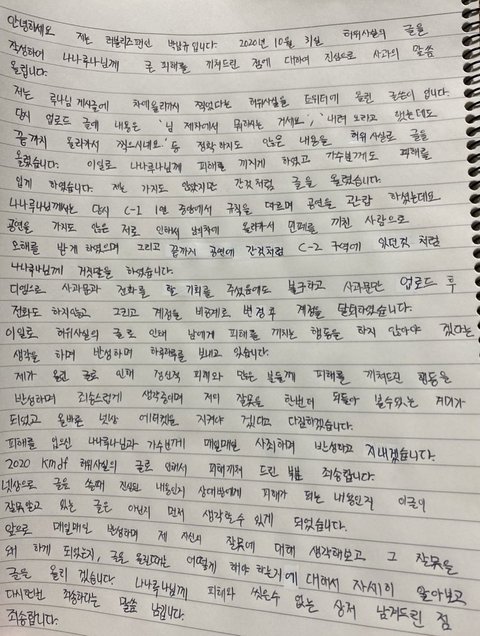 안녕하세요 저는 러블리즈팬인 입니다. 2020년 10월 31일 허위사실의 글을
작성하여 나나루나님께 큰 피해를 끼쳐드린 점에 대하여 진심으로 사과의 말씀
올립니다.
저는 루나님 게시글에 차에올라가서 찍었다는 허위사실을 트위터에 올린 글쓴이 입니다.
당시 업로드 글에 내용은 '님 제차에서 뭐하시는 거세요', '내려 오라고 했는데도
끝까지 올라가서 찍으시네요' 등 정확하지도 않은 내용을 허위사실로 글을
올렸습니다. 이일로 나나루나님께 피해를 끼치게 하였고 가수분께도 피해를
입게 하였습니다. 저는 가지도 않았지만 간것처럼 글을 올렸습니다.
나나루나님께서는 당시 C-1 1열 중앙에서 규칙을 따르며 공연을 관람 하셨는데요
공연을 가지도 않은 저로 인해서 올라가서 민폐를 끼친 사람으로
오해를 받게 하였으며 그리고 끝까지 공연에 간것처럼 C-2 구역에 있던것 처럼
나나루나님께 거짓말을 하였습니다.
디엠으로 사과문과 전화를 할 기회를 주셨음에도 불구하고 사과문만 업로드 후
전화도 하지않고 그리고 계정을 비공개로 변경후 계정을 탈퇴하였습니다.
이일로 허위사실의 글로 인해 남에게 피해를 끼치는 행동을 하지 않아야 겠다는
생각을 하며 반성하며 하루하루를 보내고 있습니다.
제가 올린 글로 인해 정신적 피해와 많은 분들께 피해를 끼쳐드린 행동을
반성하며 죄송스럽게 생각중이며 저의 잘못을 한번더 되돌아 볼수있는 계기가
되었고 올바른 넷상 에티켓을 지켜야 겠다고 다짐하겠습니다.
피해를 입으신 나나루나님과 가수분께 매일매일 사죄하며 반성하고 지내겠습니다.
2020 kmdf 허위사실의 글로 인해서 피해끼쳐 드린 부분 죄송합니다.
넷상으로 글을 쓸때 진실된 내용인지 상대방에게 피해가 되는 내용인지 이글이
잘못쓰고 있는 글은 아닌지 먼저 생각할수 있게 되었습니다.
앞으로 매일매일 반성하며 제 자신의 잘못에 대해 생각해보고 그 잘못을
왜 하게 되었는지, 글을 올릴때는 어떻게 해야 하는거에 대해서 자세히 알아보고
글을 올리 겠습니다. 나나루나님께 피해와 씻을수 없는 상처 남겨드린 점
다시한번 죄송하다는 말씀 남깁니다.
죄송합니다.